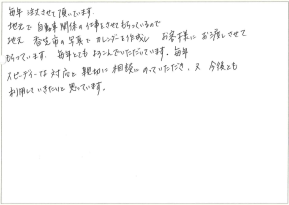 毎年 注文させて頂いています。
地元で 自動車関係の仕事をさせてもらっているので
地元 香芝市の写真で カレンダーを作成し お客様に お渡しさせて
もらっています。毎年とても よろこんでいただいています。毎年
スピーディーな対応と 親切に 相談に のっていただき、又 今後とも
利用していきたいと 思っています。